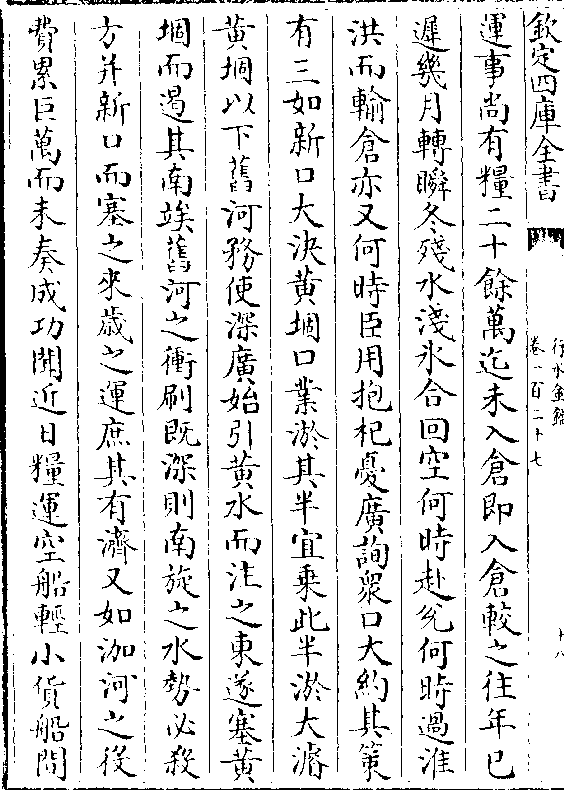 欽定四庫全書
行水金鑑
卷一百二十七
十八
運事尚有糧二十餘萬迄未入倉即入倉較之往年已
遲幾月轉瞬冬殘水淺氷合回空何時赴兊何時過淮
洪而輸倉亦又何時臣用抱杞憂廣詢衆口大約其策
有三如新口大決黄堌口業淤其半宜乗此半淤大濬
黄堌以下舊河務使深廣始引黄水而注之東遂塞黄
堌而遏其南竢舊河之衝刷既深則南旋之水勢必殺
方并新口而塞之來歳之運庶其有濟又如泇河之役
費累巨萬而未奏成功聞近日糧運空船輕小貨船間